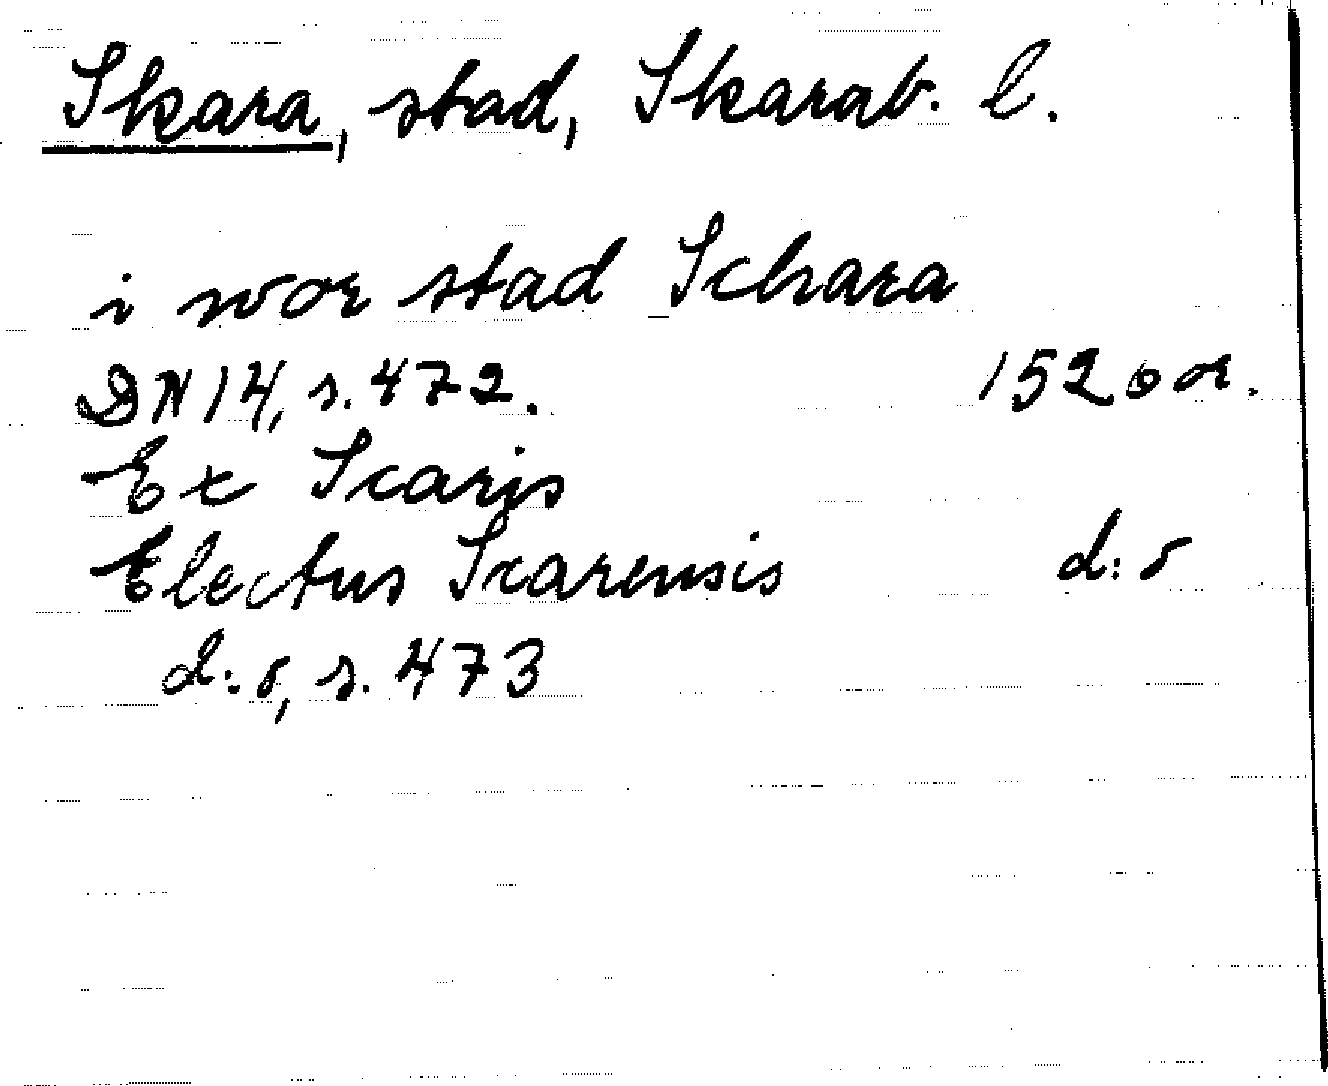 Skara, stad, Skarab. l.
i wor stad Schara
DN 14, s. 472. 1520 or.
Ex Scaris
Electus Scarensis d:o
d:o, s. 473